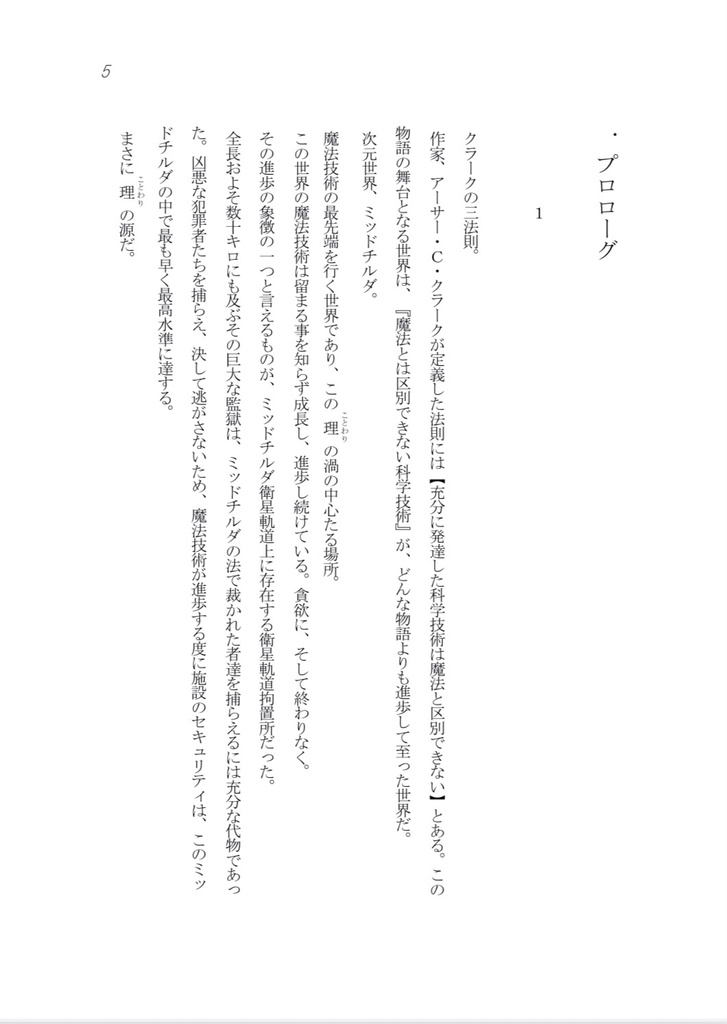 ・プロローグ
1
クラークの三法則。
作家、アーサー・C・クラークが定義した法則には【充分に発達した科学技術は魔法と区別できない】とある。この
物語の舞台となる世界は、『魔法とは区別できない科学技術』が、どんな物語よりも進歩して至った世界だ。
次元世界、ミッドチルダ。
魔法技術の最先端を行く世界であり、この理(ことわり)の渦の中心たる場所。
この世界の魔法技術は留まる事を知らず成長し、進歩し続けている。貪欲に、そして終わりなく。
その進歩の象徴の一つと言えるものが、ミッドチルダ衛星軌道上に存在する衛星軌道拘置所だった。
全長およそ数十キロにも及ぶその巨大な監獄は、ミッドチルダの法で裁かれた者達を捕らえるには充分な代物であっ
た。凶悪な犯罪者たちを捕らえ、決して逃がさないため、魔法技術が進歩する度に施設のセキュリティは、このミッ
ドチルダの中で最も早く最高水準に達する。
まさに理(ことわり)の源だ。
5